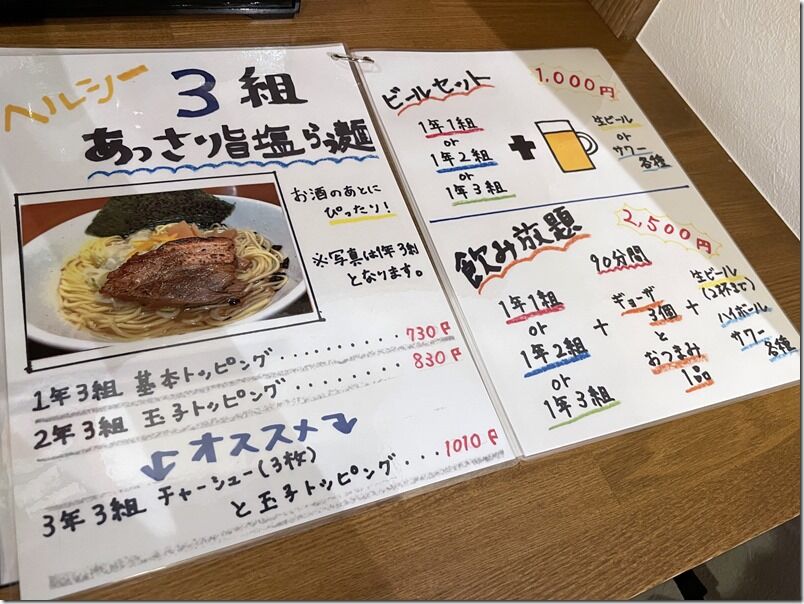 ヘルシー
3組
あっさり旨塩ら麺
お酒のあとに
ぴったり!
※写真は1年3組
となります。
1年3組 基本トッピング・・・・・・・・・・730円
2年3組 玉子トッピング・・・・・・・・・・830円
オススメ
3年3組 チャーシュー(3枚)
と玉子トッピング・・・1010円
ビールセット
1,000円
1年1組
or
1年2組
or
1年3組
+
生ビール
or
サワー
各種
飲み放題
2,500円
90分間
1年1組
or
1年2組
or
1年3組
+
ギョーザ
3個
と
おつまみ
1品
+
生ビール
(2杯まで)
ハイボール
サワー
各種